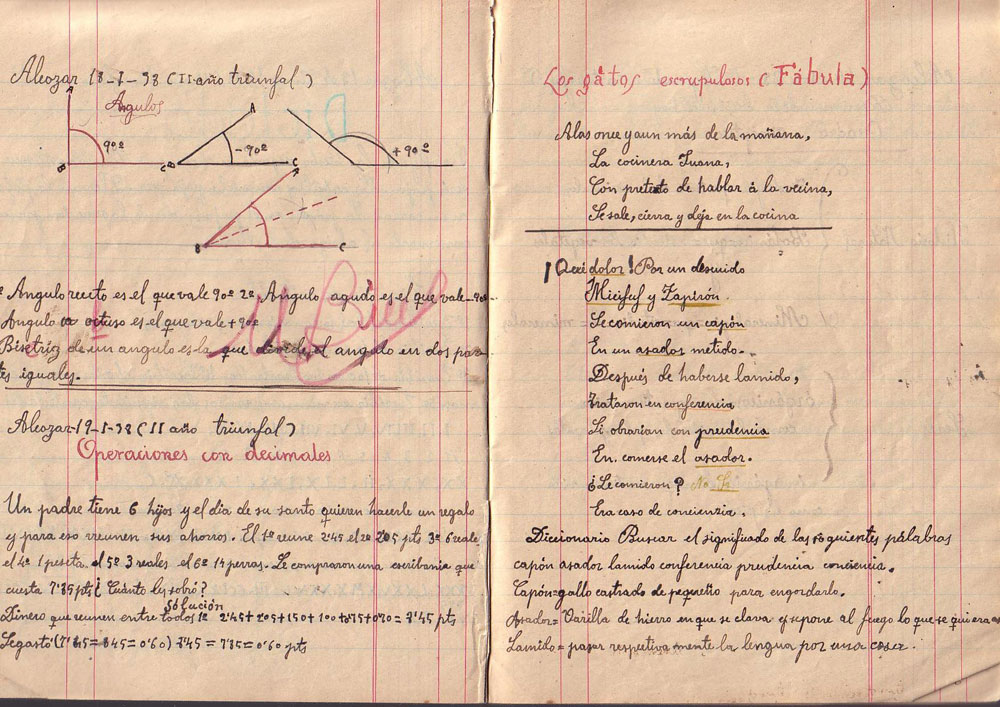 Alcozar 18-1-38 (II año triunfal)
Angulos
A
90º
B
C
A
-90º
B
C
+90º
A
B
C
Angulo recto es el que vale 90º 2º Angulo agudo es el que vale -90º
Angulo octuso es el que vale +90º
Bisetriz de un angulo es la que divide el angulo en dos par
tes iguales.
Bien
Alcozar-19-1-38 (II año triunfal)
Operaciones con decimales
Un padre tiene 6 hijos y el dia de su santo quieren hacerle un regalo
y para eso rreunen sus ahoros. El 1º reune 2'45 el 2º 2'05 pts 3º 6 reale
el 4º 1 peseta el 5º 3 reales el 6º 14 perras. Le compraron una escribania que
cuesta 7'85 pts ¿Cuánto les sobró?
Solución
Dinero que reunen entre todos 2'45+2'05+1'50+1'00+0'75+0'70=
Se gastó
pts
Los gatos escrupulosos (Fábula)
A las once y aun más de la mañana,
La cocinera Juana,
Con pretexto de hablar á la vecina,
Se sale, cierra y deja en la cocina
¡Qué dolor! Por un descuido
Micifuf y Zapirón.
Se comieron un capón
En un asador metido.
Después de haberse lamido,
trataron en conferencia
Si obrarían con prudencia
En comerse el asador.
¿Le comieron? No Sr
Era caso de concienzia.
Diccionario Buscar el significado de las siguientes palabras
capón asador lamido conferencia prudencia conciencia.
Capón=gallo castrado de pequeño para engordarlo.
Asador=Varilla de hierro en que se clava y se pone al fuego lo que se quiera as
Lamido=pasar respectiva mente la lengua por una cosa.